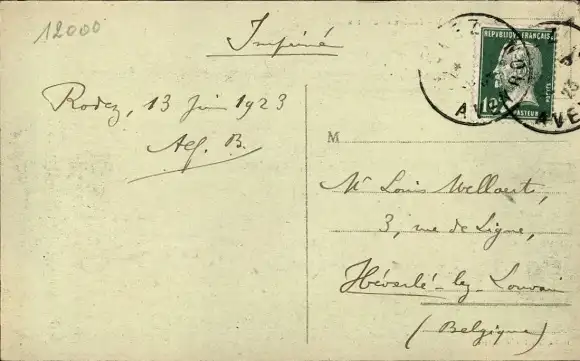 12000
Imprimé
Rodez, 13 Juin 1923
Alf. B.
REPUBLIQUE FRANÇAISE
POSTES
10
PASTEUR
AVEYRON
AVE
23
M
Mr Louis Wellaert,
3, rue de Ligne,
Héverlé-lez-Louvain
(Belgique)